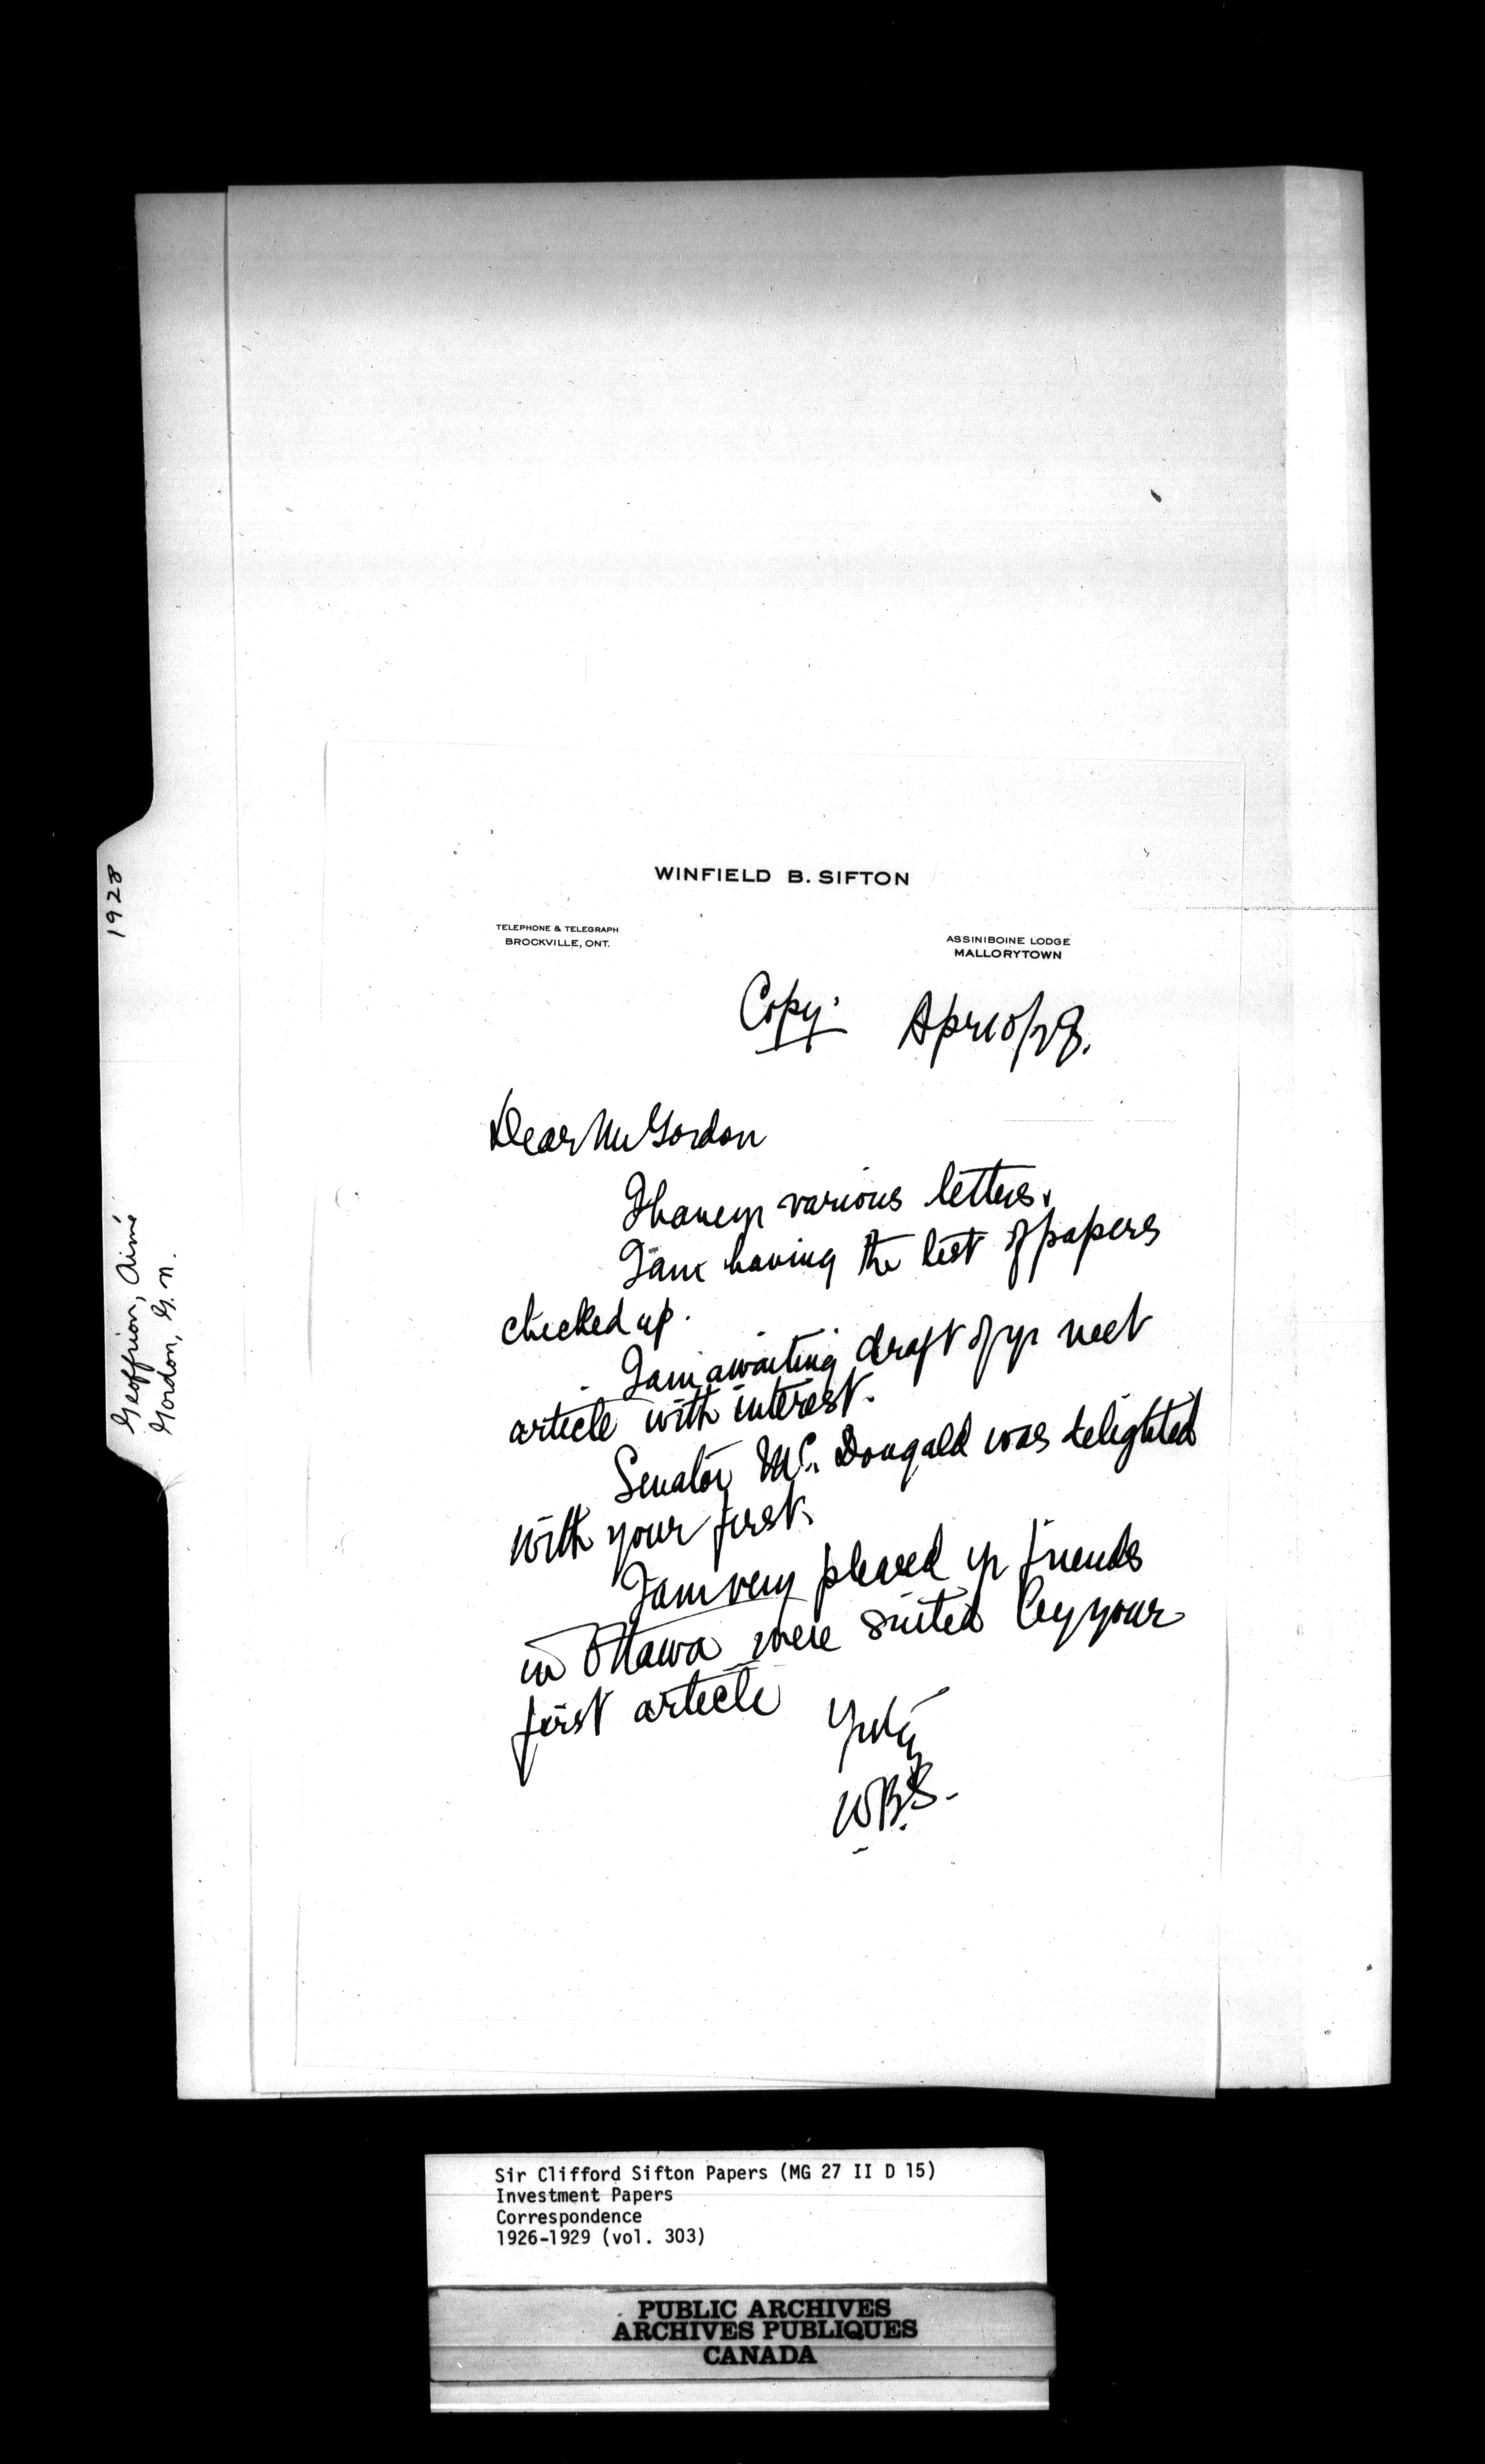 WINFIELD B. SIFTON
TELEPHONE & TELEGRAPH
BROCKVILLE, ONT.
ASSINIBOINE LODGE
MALLORYTOWN
Copy. Apr 10/28.
Dear Mr Gordon
I have yr various letters.
I am having the list of papers
checked up.
I am awaiting draft of yr next
article with interest.
Senator Mc. Dougald was delighted
with your first.
I am very pleased yr friends
in Ottawa were suited by your
first article
W.B.S.
1928
Geoffrion, Aimé
Gordon, G.N.
Sir Clifford Sifton Papers (MG 27 II D 15)
Investment Papers
Correspondence
1926-1929 (vol. 303)
PUBLIC ARCHIVES
ARCHIVES PUBLIQUES
CANADA